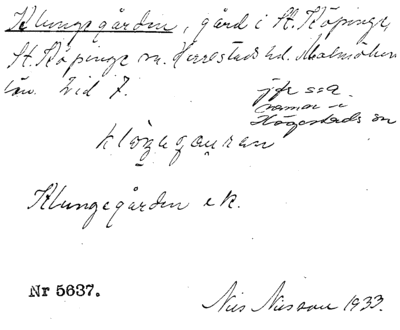 Klungegården, gård i St. Köpinge,
St. Köpinge sn. Herrestads hd. Malmöhus
län. Zid 7.
jfr s:a
namn i
Högestads sn
Klungegården ek.
Nr 5637.
Nils Nilsson 1933.